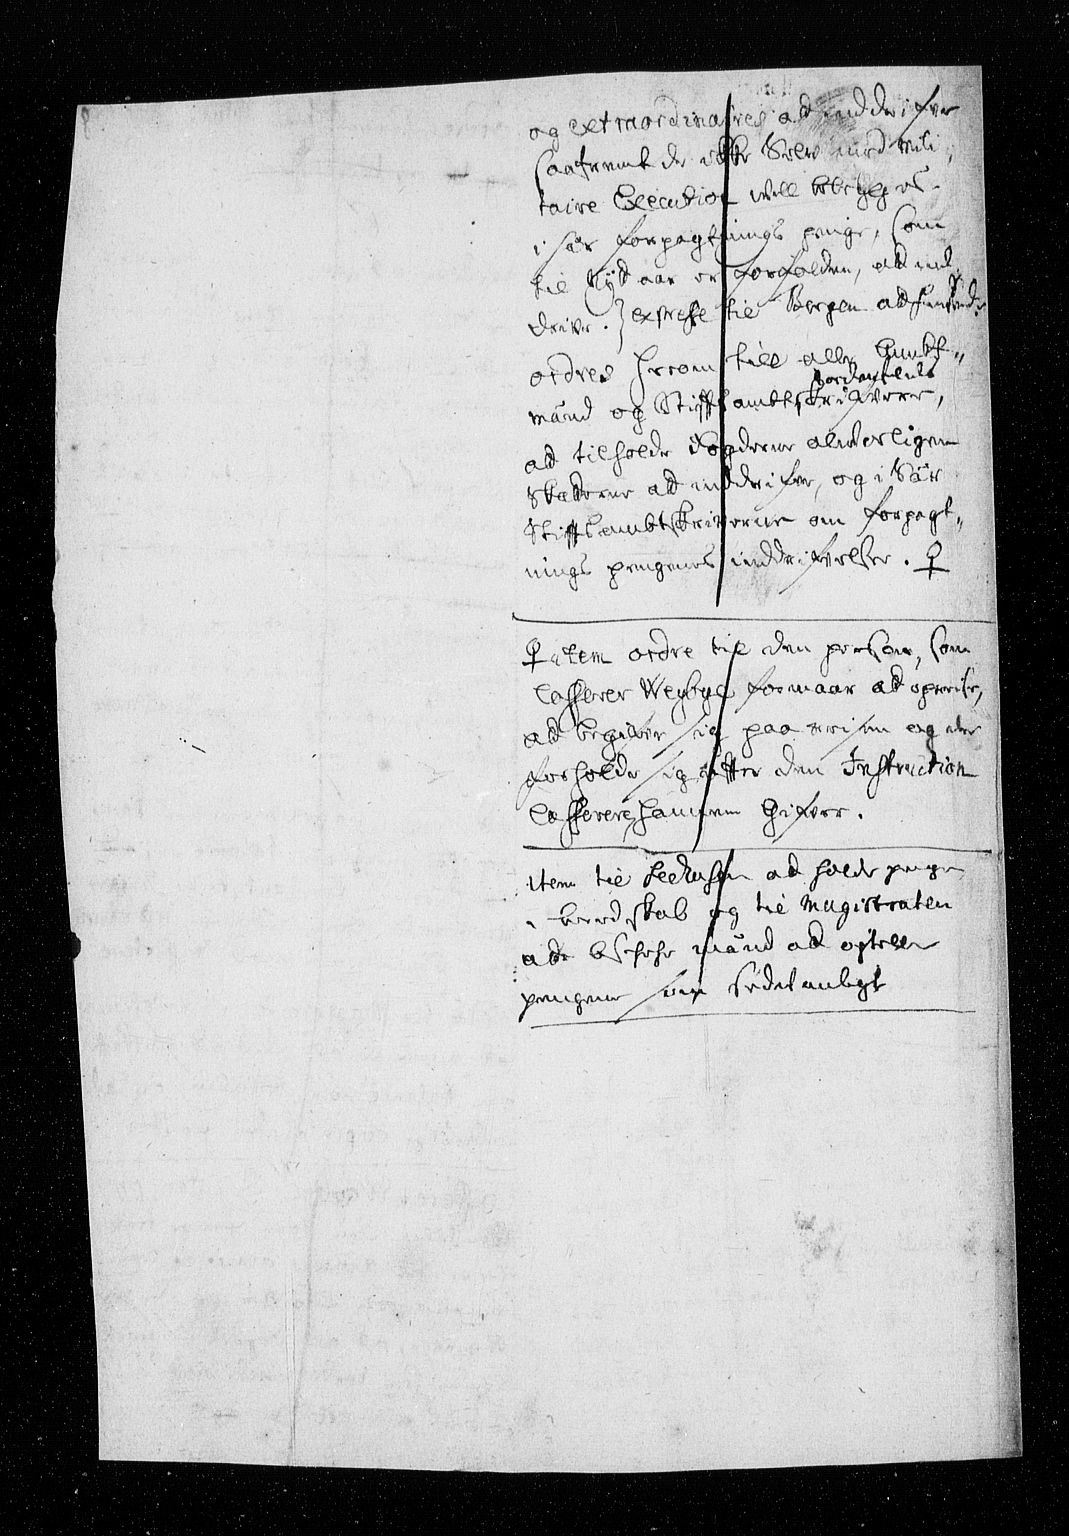 og extraordinaires ad inddrifve
saafremt de icke Selv med mili,
taire Execution vill belegges
i sær forpagtnings penge, som
til Nyd aar er forfolden, ad ind,
drive. } expresse til Bergen ad
ordres herom till alle Ambt,,
mænd og Stifftsambtskrifvere,
ad tilholde fogderne alvorligen
skatterne ad inddrifve, og i Sær
Stifftsambtskriverne om forpagt,,
nings pengenes inddrifvelse. ♀
♀ item ordre til den person, som
Casserer Weybye formaar ad opreise,
ad begifve sig paa reisen og der
forholde sig efter den Instruction
Cassereren hannem gifver.
item til ad holde penge
i beredskab og til Magistraten
ad mænd ad optelle
pengene som sedvanligt